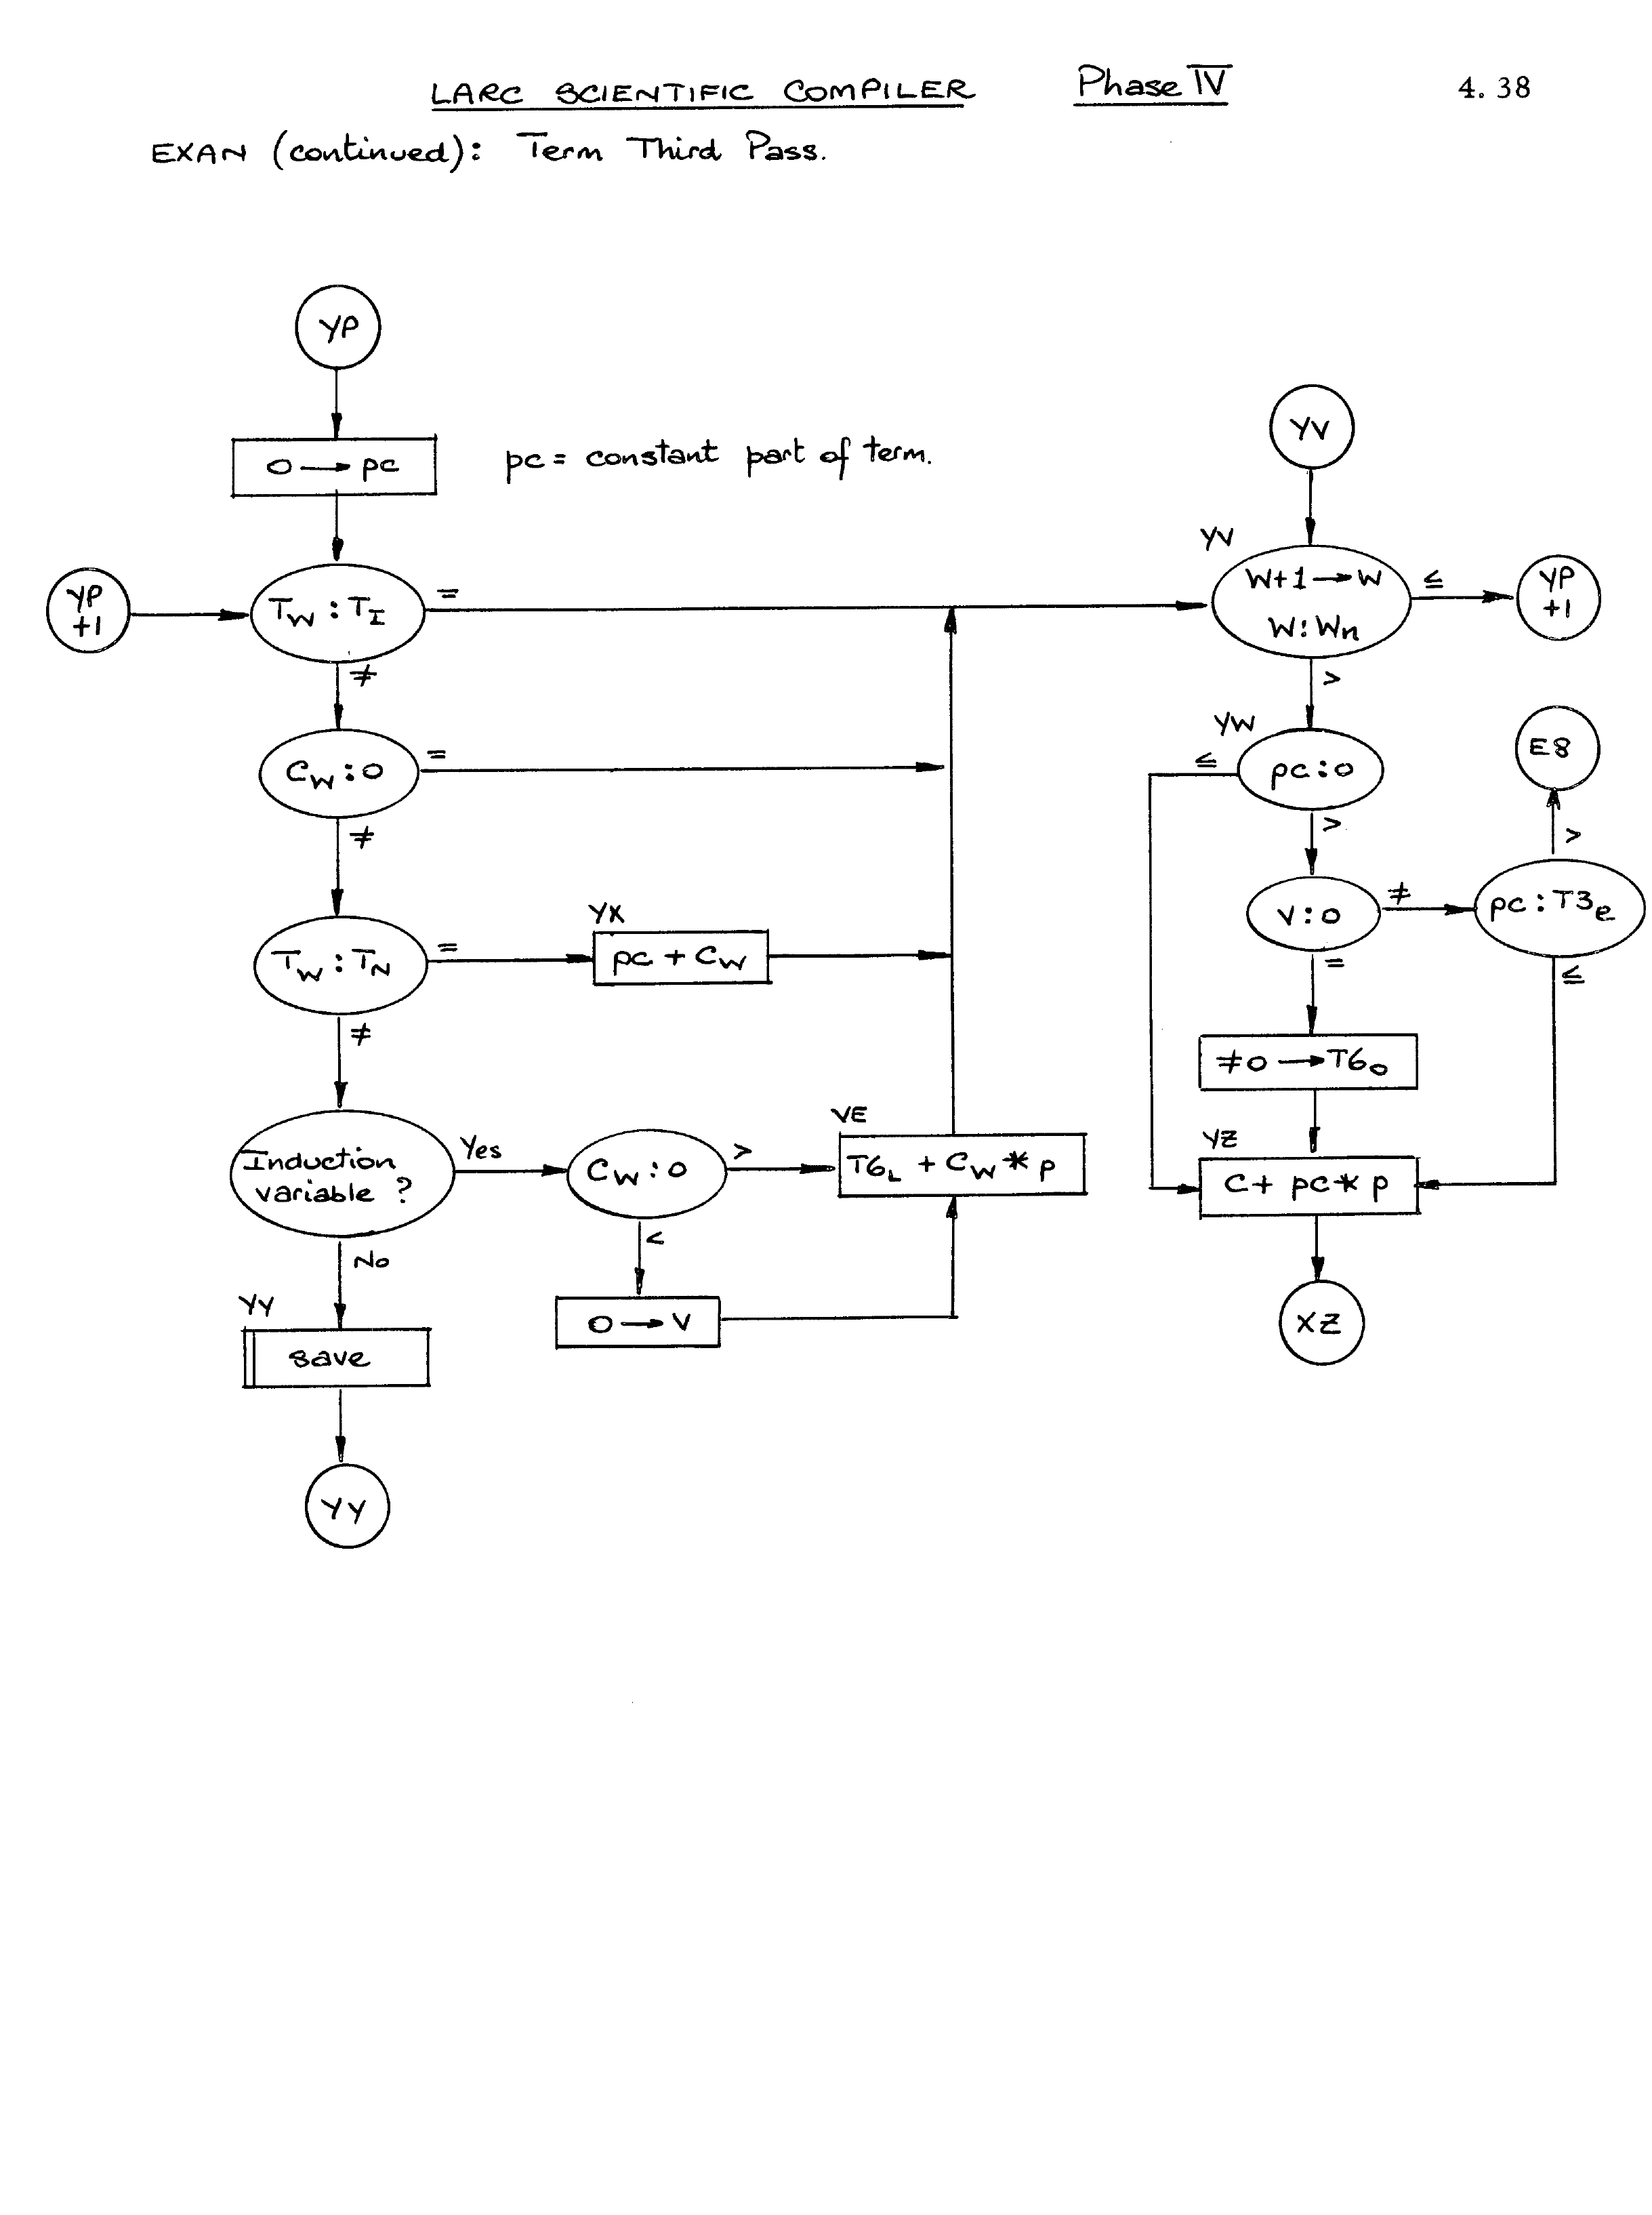 LARC SCIENTIFIC COMPILER Phase IV 4.38
EXAN (continued): Term Third Pass.
YP
0 → pc
pc = constant part of term.
YP
+1
T_W : T_I
=
≠
C_W : 0
=
≠
T_W : T_N
=
≠
YX
pc + C_W
Induction
variable ?
Yes
No
C_W : 0
>
<
VE
T6_L + C_W * p
0 → V
YY
save
YY
YV
YV
W+1 → W
W : Wn
≤
>
YP
+1
YW
pc : 0
≤
>
V : 0
≠
=
pc : T3_e
>
≤
E8
≠0 → T6_0
YZ
C + pc * p
XZ